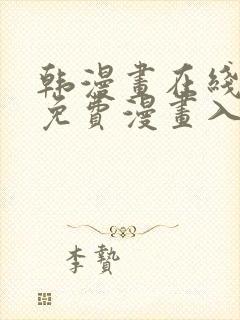 韩漫畫在綫
免費漫畫入
李贄